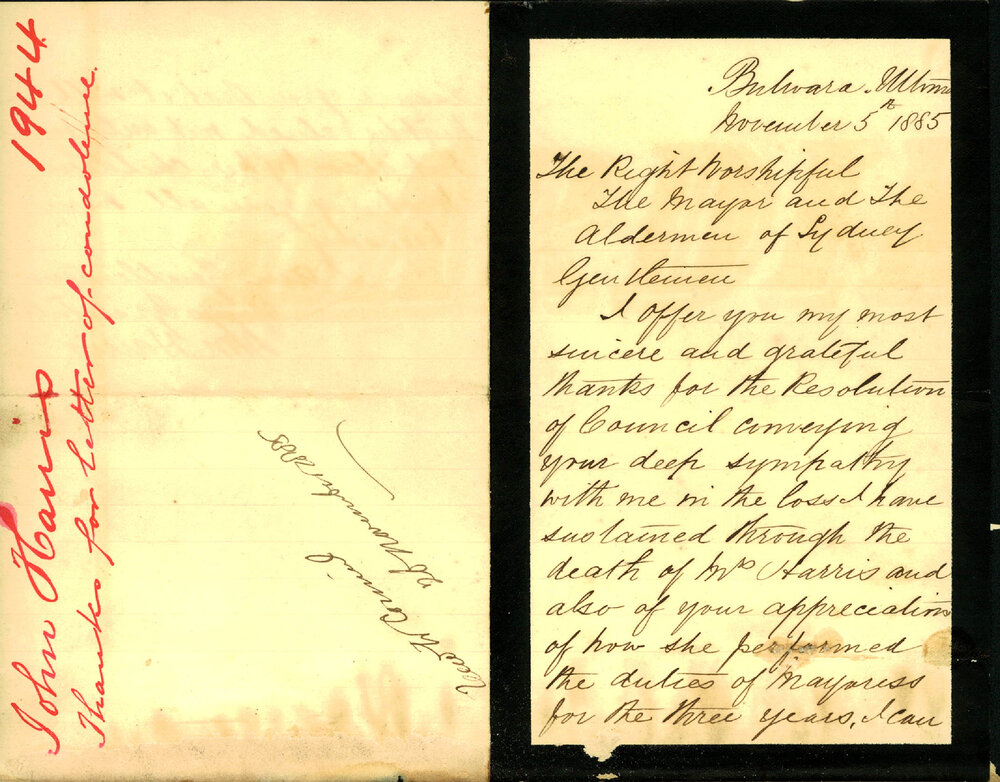 1944
John Harris
Thanks for letter of condolence.
Council
November 1885
Bulwara Ultimo
November 5th 1885
The Right Worshipful
The Mayor and The
Aldermen of Sydney
Gentlemen
I offer you my most
sincere and grateful
thanks for the Resolution
of Council conveying
your deep sympathy
with me in the loss I have
sustained through the
death of Mrs Harris and
also of your appreciation
of how she performed
the duties of Mayoress
for the three years, I can